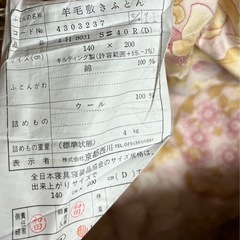 ふとんの名称 羊毛敷きふとん
コードNo 4303237
4H 8631 S≡40R(D)
140 × 200
キルティング製(許容範囲+5%,-2%)
ふとんがわ 綿 100 %
詰めもの ウール 100 %
詰めもの重量 (標準状態) 4 kg
表示者 株式会社 京都西川
全日本寝具寝装品協会のサイズ規格は、
出来上がりサイズで (D)
140 cm × 200 cm